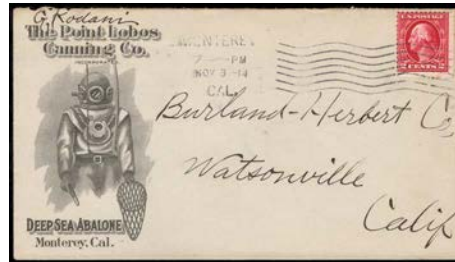 G. Kodani
The Point Lobos
Canning Co.
INCORPORATED
MONTEREY
7 - PM
NOV 3 - 14
CAL.
U.S. POSTAGE
2 CENTS 2
Burland-Herbert Co
Watsonville
Calif
DEEP SEA ABALONE
Monterey, Cal.